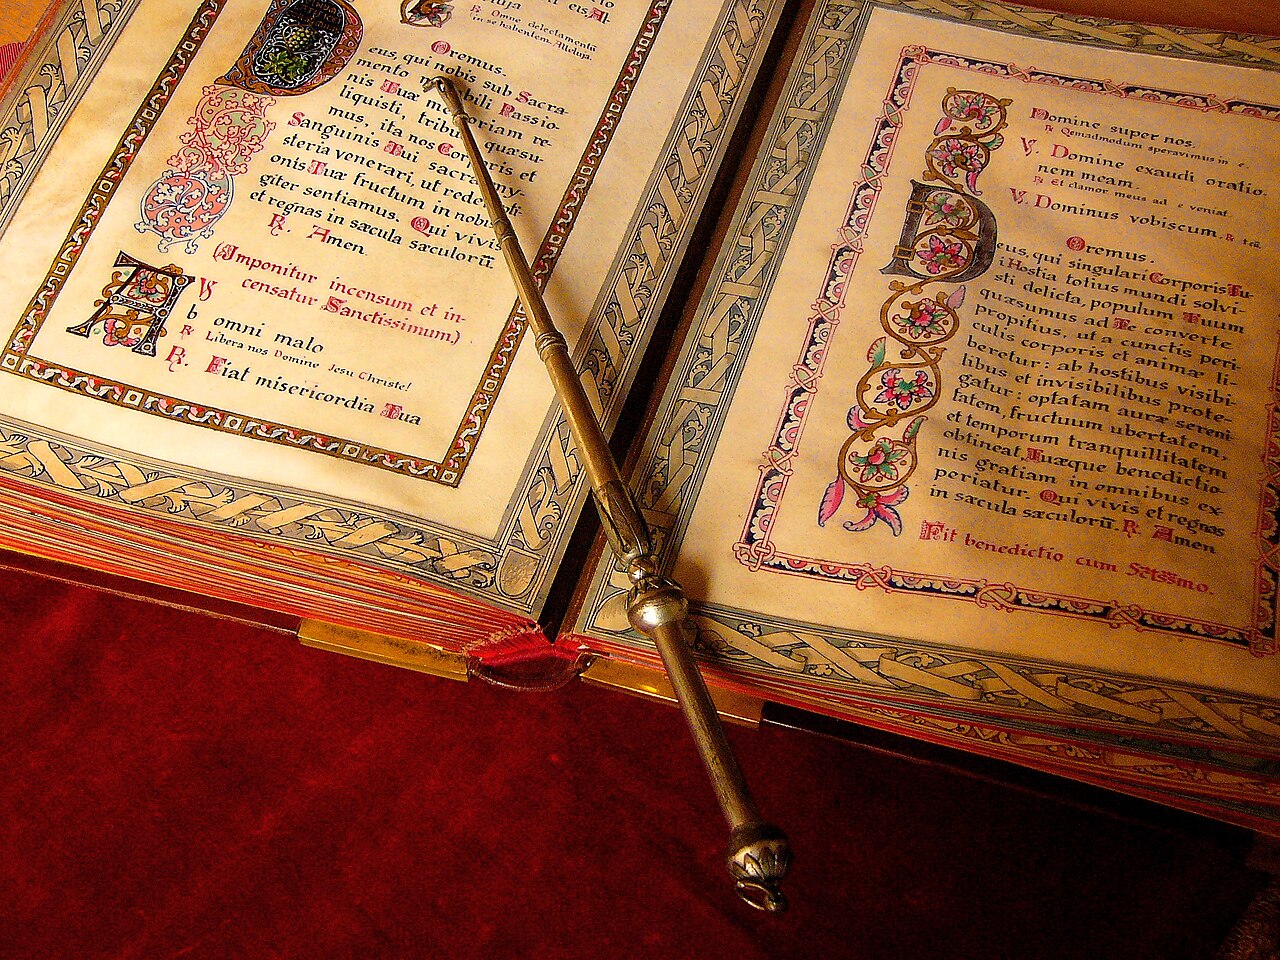 eis Al
luja
℟. Omne delectamentū
in se habentem. Alleluja.
Oremus.
eus, qui nobis sub Sacra-
mento mabili Passio-
nis Tuæ memoriam re-
liquisti, tribue quæsu-
mus, ita nos Corporis et
Sanguinis Tui sacra my-
steria venerari, ut redemptionis
onis Tuæ fructum in nobis
giter sentiamus. Qui vivis
et regnas in sæcula sæculorū.
℟. Amen.
(Imponitur incensum et in-
censatur Sanctissimum)
A
℣
b omni malo
℟ Libera nos Domine Jesu Christe!
℟. Fiat misericordia Tua
Domine super nos.
℟ Qemadmodum speravimus in e.
℣. Domine exaudi oratio.
nem meam.
℟ Et clamor meus ad e veniat.
℣. Dominus vobiscum. ℟
Oremus.
D
eus, qui singulari Corporis Tu-
i Hostia totius mundi solvi-
sti delicta, populum Tuum
quæsumus ad Te converte
propitius, ut a cunctis peri-
culis corporis et animæ li-
beretur: ab hostibus visibi-
libus et invisibilibus prote-
gatur: optatam auræ sereni-
tatem, fructuum ubertatem,
et temporum tranquillitatem
obtineat, Tuæque benedictio-
nis gratiam in omnibus ex-
periatur. Qui vivis et regnas
in sæcula sæculorū. ℟. Amen
Fit benedictio cum SStssmo.